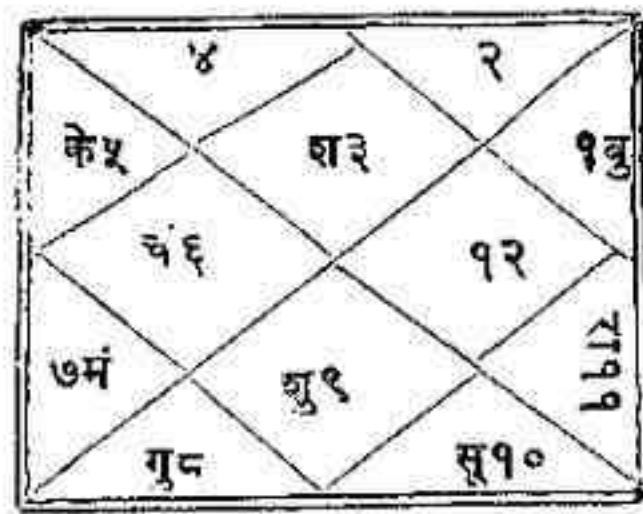 ४
२
के५
श३
१बु
चं६
१२
७मं
शु९
रा११
गु८
सू१०